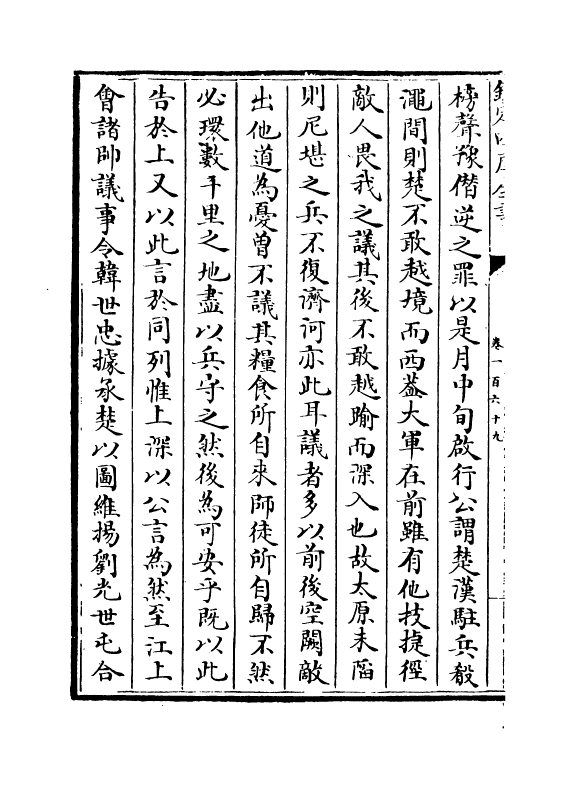 卷一百六十九
榜聲豫僭逆之罪以是月中旬啟行公謂楚漢駐兵殽
澠間則楚不敢越境而西蓋大軍在前雖有他技捷徑
敵人畏我之議其後不敢越踰而深入也故太原未陷
則尼堪之兵不復濟河亦此耳議者多以前後空闕敵
出他道為憂曾不議其糧食所自來師徒所自歸不然
必環數千里之地盡以兵守之然後為可安乎既以此
告於上又以此言於同列惟上深以公言為然至江上
會諸帥議事令韓世忠據承楚以圖維揚劉光世屯合